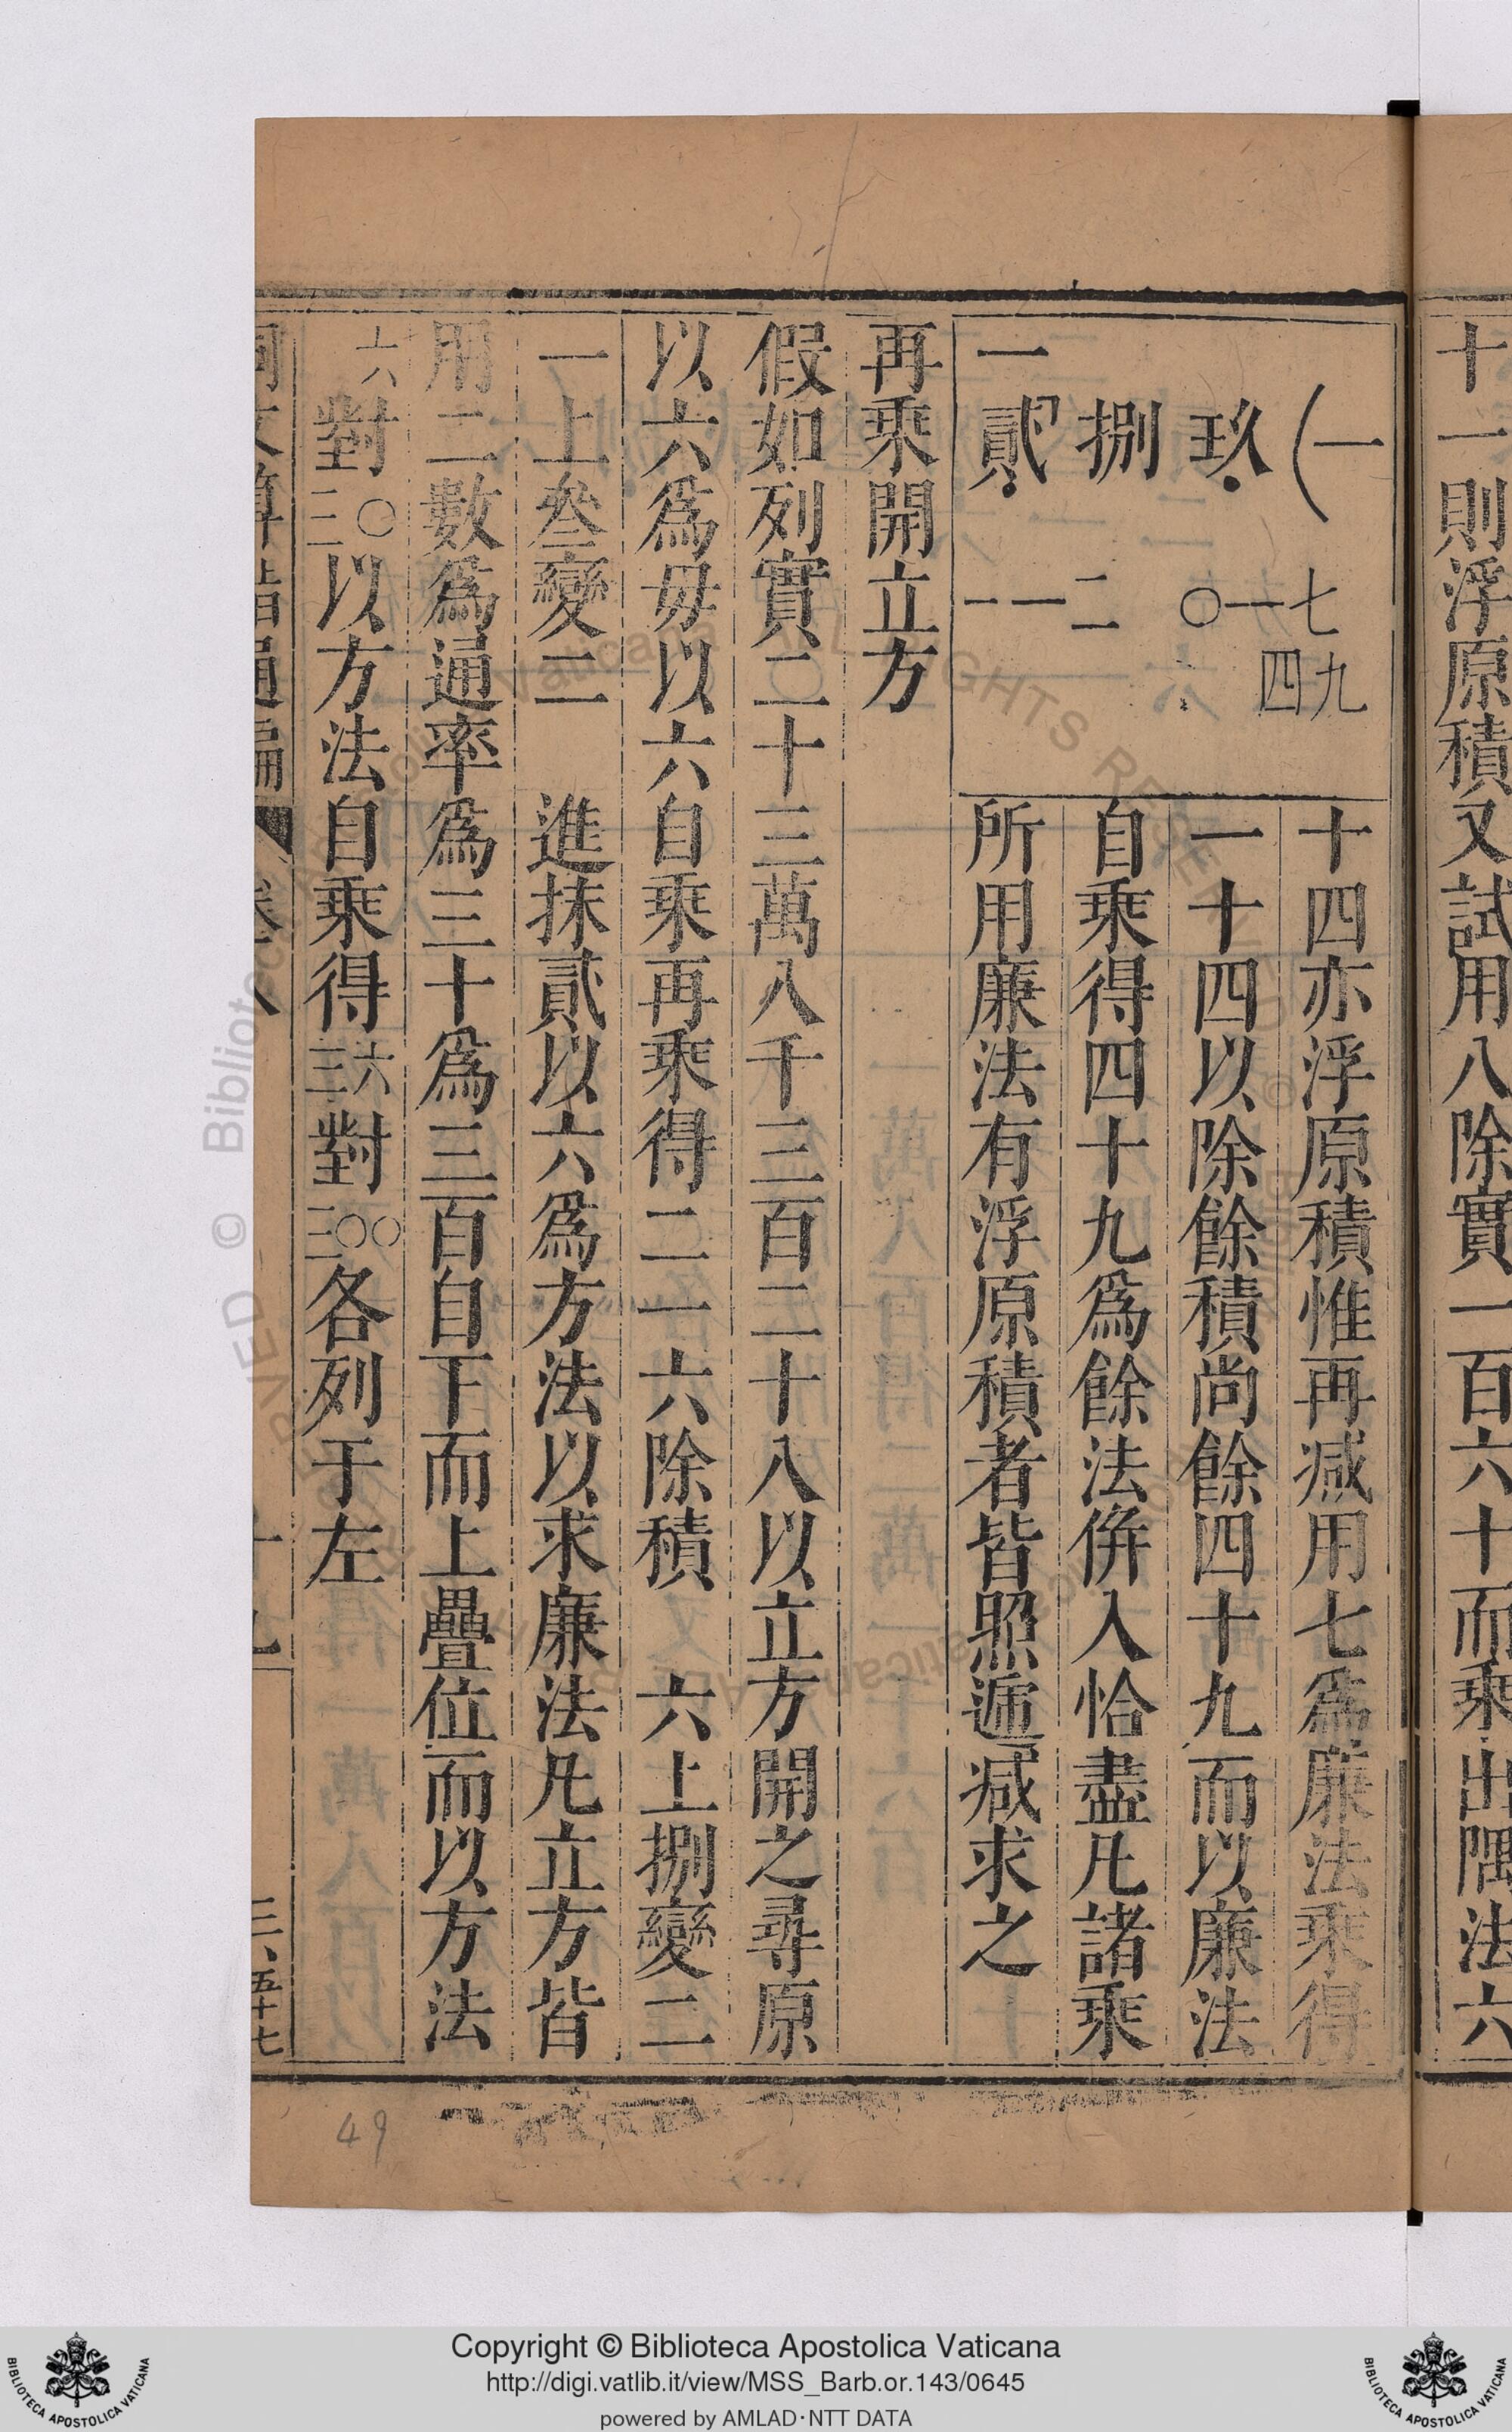 十一則浮原積又試用八除實一百六十而乘出隅法六
十四亦浮原積惟再减用七爲廉法乘得
一十四以除餘積尚餘四十九而以廉法
自乘得四十九爲餘法併入恰盡凡諸乘
所用廉法有浮原積者皆照遞减求之
一(
玖
捌
貳
一
七一〇
二
一一
九四
再乘開立方
假如列實二十三萬八千三百二十八以立方開之尋原
以六爲毋以六自乘再乘得二一六除積 六上捌變二
一上叄變二 進抹貳以六爲方法以求廉法凡立方皆
用二數爲通率爲三十爲三百自下而上疊位而以方法
六對三〇以方法自乘得三六對三〇〇各列于左
同文算指通編
三、五十七
49
Copyright © Biblioteca Apostolica Vaticana
http://digi.vatlib.it/view/MSS_Barb.or.143/0645
powered by AMLAD·NTT DATA
BIBLIOTECA APOSTOLICA VATICANA
BIBLIOTECA APOSTOLICA VATICANA